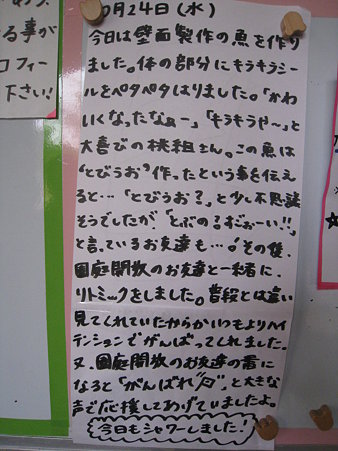 る事が
ロフィー
下さい!!
0月24日(水)
今日は壁面製作の魚を作り
ました。体の部分にキラキラシー
ルをペタペタはりました。「かわ
いくなったなぁー」「キラキラやー」と
大喜びの桃組さん。この魚は
“とびうお”作ったという事を伝え
ると…「とびうお?」と少し不思議
そうでしたが、「とぶの?すごぉーい!!」
と言っているお友達も…!その後、
園庭開放のお友達と一緒に、
リトミックをしました。普段とは違い
見てくれていたからかいつもよりハイ
テンションでがんばってくれました。
又、園庭開放のお友達の番に
なると「がんばれ〜」と大きな
声で応援してあげていましたよ。
今日もシャワーしました!